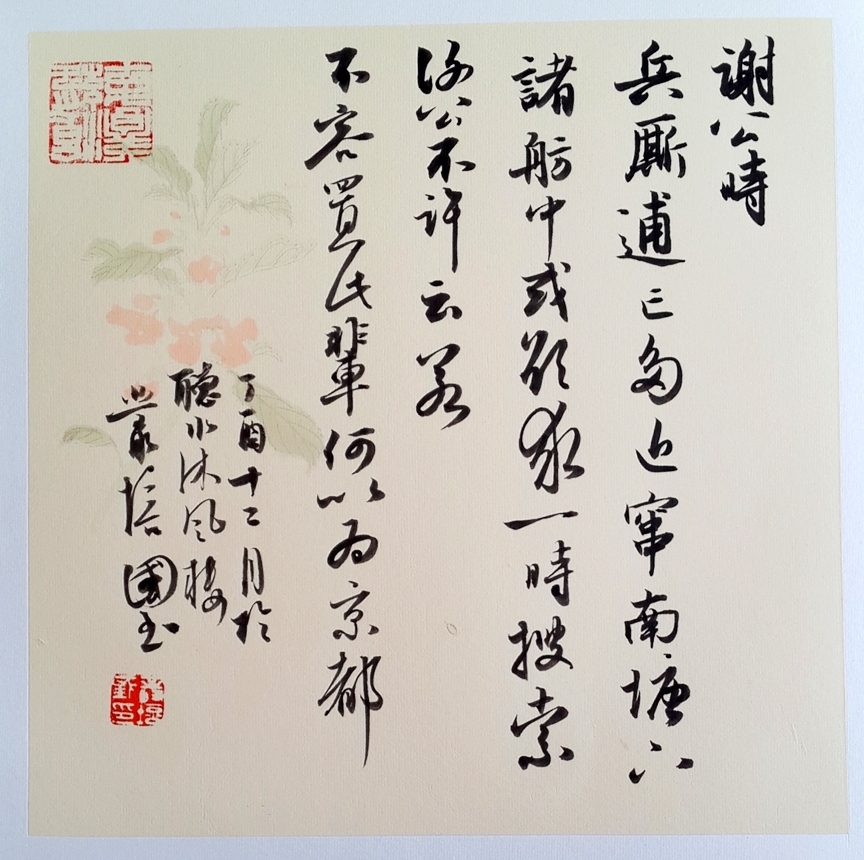 謝公時
兵廝逋亡多近竄南塘下
諸舫中或欲求一時搜索
謝公不許云若
不容置此輩何以為京都
丁酉十二月於
聽水沐風樓
叢培國书